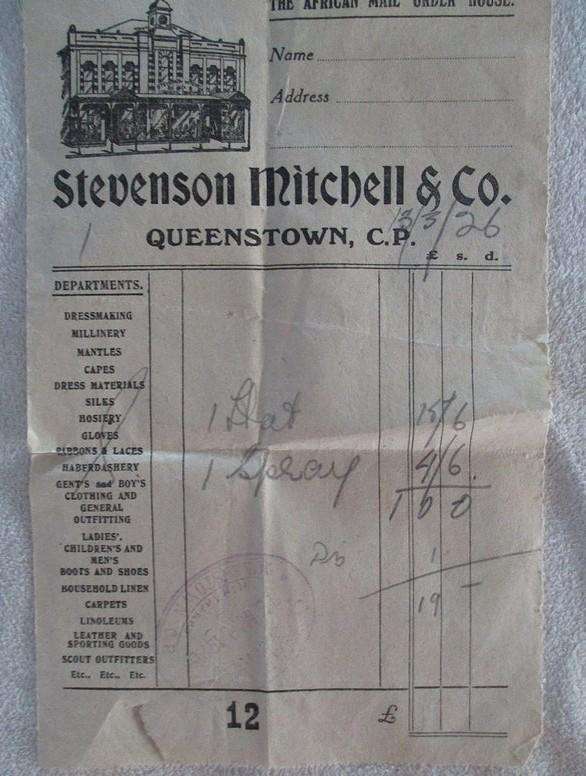 THE AFRICAN MAIL ORDER HOUSE.
Name
Address
Stevenson Mitchell & Co.
QUEENSTOWN, C.P.
3/3/26
£ s. d.
DEPARTMENTS.
DRESSMAKING
MILLINERY
MANTLES
CAPES
DRESS MATERIALS
SILKS
HOSIERY
GLOVES
RIBBONS & LACES
HABERDASHERY
GENT'S and BOY'S
CLOTHING AND
GENERAL
OUTFITTING
LADIES'.
CHILDREN'S AND
MEN'S
BOOTS AND SHOES
HOUSEHOLD LINEN
CARPETS
LINOLEUMS
LEATHER AND
SPORTING GOODS
SCOUT OUTFITTERS
Etc., Etc., Etc.
1 Hat 15/6
1 Spray 4/6
1 0 0
Dis 1
19 –
12 £